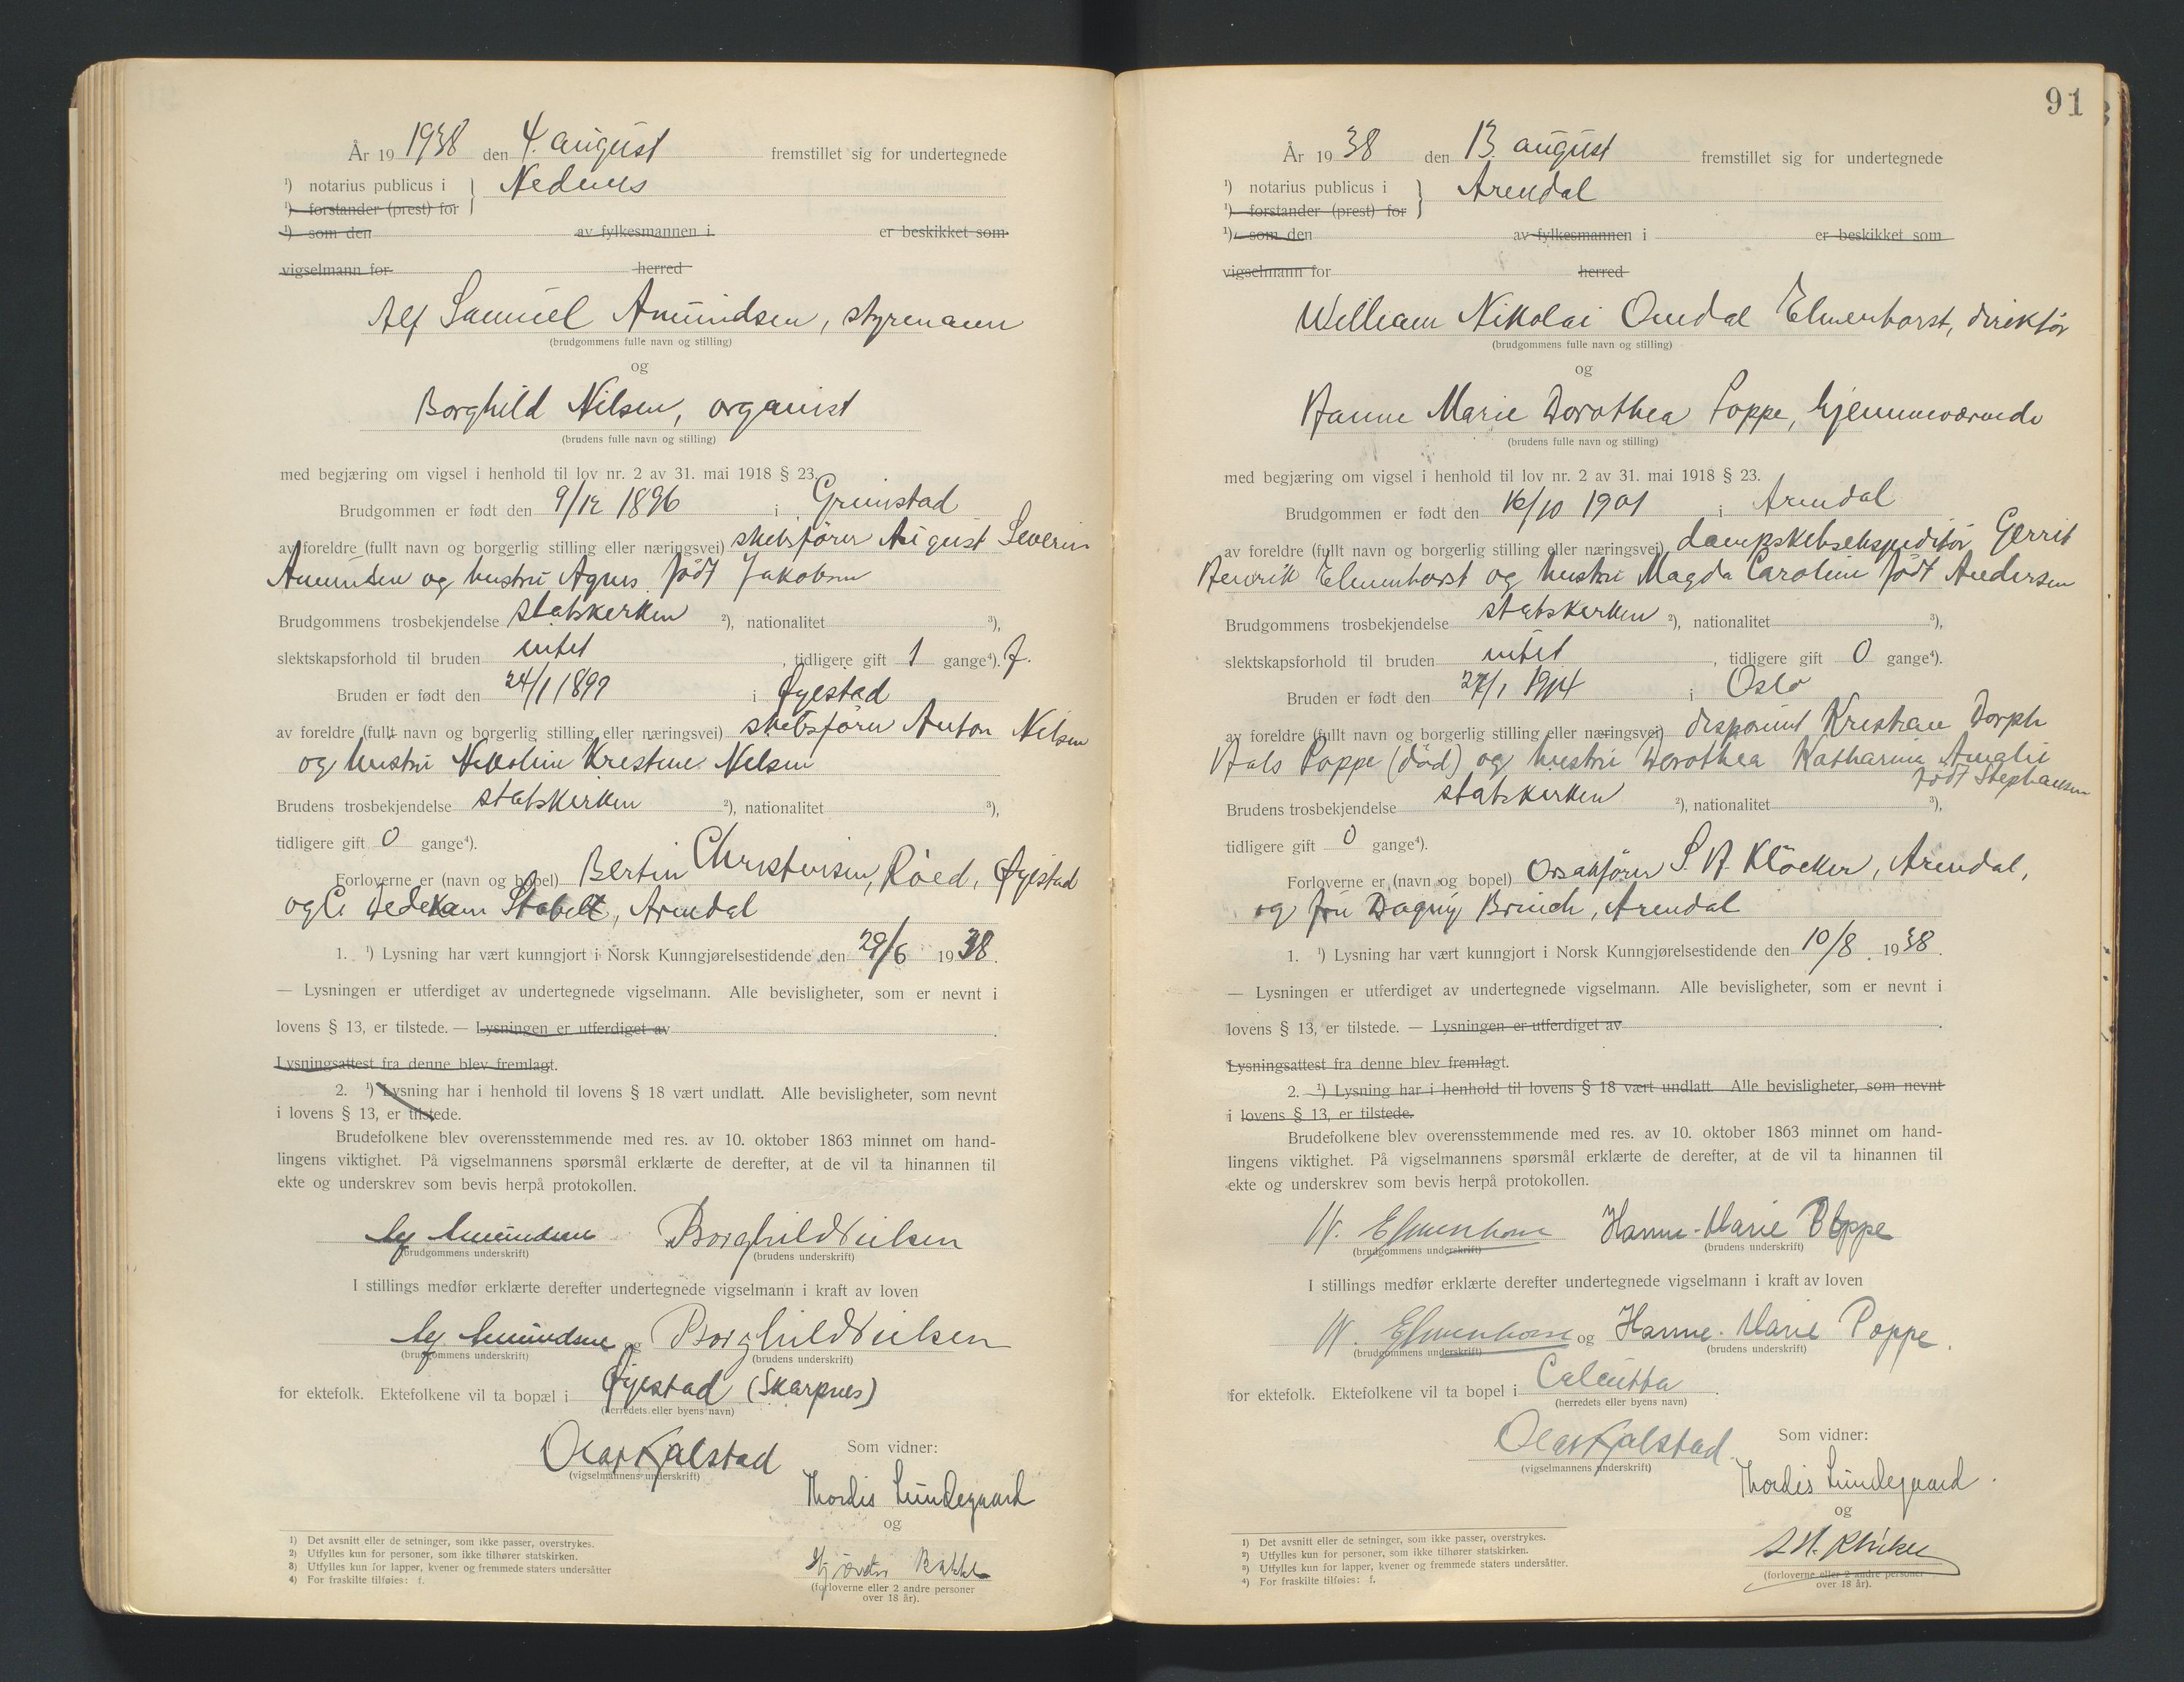 År 19 1938 den 4. august fremstillet sig for undertegnede
¹) notarius publicus i } Nedenes
¹) forstander (prest) for
¹) som den av fylkesmannen i er beskikket som
vigselmann for herred
Alf Samuel Amundsen, styrmann
(brudgommens fulle navn og stilling)
og
Borghild Nilsen, organist
(brudens fulle navn og stilling)
med begjæring om vigsel i henhold til lov nr. 2 av 31. mai 1918 § 23.
Brudgommen er født den 9/12 1896 i Grimstad
av foreldre (fullt navn og borgerlig stilling eller næringsvei) skibsfører August Severin
Amundsen og hustru Agnes født Jakobsen
Brudgommens trosbekjendelse statskirken ²), nationalitet ³),
slektskapsforhold til bruden intet, tidligere gift 1 gange⁴). f.
Bruden er født den 24/1 1899 i Øyestad
av foreldre (fullt navn og borgerlig stilling eller næringsvei) skibsfører Anton Nilsen
og hustru Nikoline Kristine Nilsen
Brudens trosbekjendelse statskirken ²), nationalitet ³),
tidligere gift 0 gange⁴).
Forloverne er (navn og bopel) Bertin Christensen, Røed, Øyestad
og C. Dedekam Stabell, Arendal
1. ¹) Lysning har vært kunngjort i Norsk Kunngjørelsestidende den 29/6 1938.
— Lysningen er utferdiget av undertegnede vigselmann. Alle bevisligheter, som er nevnt i
lovens § 13, er tilstede. — Lysningen er utferdiget av .
Lysningsattest fra denne blev fremlagt.
2. ¹) Lysning har i henhold til lovens § 18 vært undlatt. Alle bevisligheter, som nevnt
i lovens § 13, er tilstede.
Brudefolkene blev overensstemmende med res. av 10. oktober 1863 minnet om hand-
lingens viktighet. På vigselmannens spørsmål erklærte de derefter, at de vil ta hinannen til
ekte og underskrev som bevis herpå protokollen.
Alf Amundsen Borghild Nilsen
(brudgommens underskrift) (brudens underskrift)
I stillings medfør erklærte derefter undertegnede vigselmann i kraft av loven
Alf Amundsen og Borghild Nilsen
(brudgommens underskrift) (brudens underskrift)
for ektefolk. Ektefolkene vil ta bopæl i Øyestad (Skarpnes)
(herredets eller byens navn)
Olaf Kjalstad
(vigselmannens underskrift)
Som vidner:
Thordis Lundegaard
og
(forloverne eller 2 andre personer
over 18 år).
1) Det avsnitt eller de setninger, som ikke passer, overstrykes.
2) Utfylles kun for personer, som ikke tilhører statskirken.
3) Utfylles kun for lapper, kvener og fremmede staters undersåtter
4) For fraskilte tilføies: f.
91
År 19 38 den 13. august fremstillet sig for undertegnede
¹) notarius publicus i } Arendal
¹) forstander (prest) for
¹) som den av fylkesmannen i er beskikket som
vigselmann for herred
William Nikolai Omdal Elmenhorst, direktør
(brudgommens fulle navn og stilling)
og
Hanne Marie Dorothea Poppe, hjemmeværende
(brudens fulle navn og stilling)
med begjæring om vigsel i henhold til lov nr. 2 av 31. mai 1918 § 23.
Brudgommen er født den 16/10 1901 i Arendal
av foreldre (fullt navn og borgerlig stilling eller næringsvei) dampskibsekspeditør Gerrit
Henrik Elmenhorst og hustru Magda Caroline født Andersen
Brudgommens trosbekjendelse statskirken ²), nationalitet ³),
slektskapsforhold til bruden intet, tidligere gift 0 gange⁴).
Bruden er født den 27/1 1914 i Oslo
av foreldre (fullt navn og borgerlig stilling eller næringsvei) disponent Kristian Dorph
Hals Poppe (død) og hustru Dorothea Katharina Amalie
født Stephansen
Brudens trosbekjendelse statskirken ²), nationalitet ³),
tidligere gift 0 gange⁴).
Forloverne er (navn og bopel) Orsakfører S. H. Kløcker, Arendal,
og fru Dagny Brinch, Arendal
1. ¹) Lysning har vært kunngjort i Norsk Kunngjørelsestidende den 10/8 1938.
— Lysningen er utferdiget av undertegnede vigselmann. Alle bevisligheter, som er nevnt i
lovens § 13, er tilstede. — Lysningen er utferdiget av .
Lysningsattest fra denne blev fremlagt.
2. ¹) Lysning har i henhold til lovens § 18 vært undlatt. Alle bevisligheter, som nevnt
i lovens § 13, er tilstede.
Brudefolkene blev overensstemmende med res. av 10. oktober 1863 minnet om hand-
lingens viktighet. På vigselmannens spørsmål erklærte de derefter, at de vil ta hinannen til
ekte og underskrev som bevis herpå protokollen.
W. Elmenhorst Hanne-Marie Poppe
(brudgommens underskrift) (brudens underskrift)
I stillings medfør erklærte derefter undertegnede vigselmann i kraft av loven
W. Elmenhorst og Hanne-Marie Poppe
(brudgommens underskrift) (brudens underskrift)
for ektefolk. Ektefolkene vil ta bopel i Calcutta.
(herredets eller byens navn)
Olaf Kjalstad
(vigselmannens underskrift)
Som vidner:
Thordis Lundegaard.
og
S. H. Kløcker
(forloverne eller 2 andre personer
over 18 år).
1) Det avsnitt eller de setninger, som ikke passer, overstrykes.
2) Utfylles kun for personer, som ikke tilhører statskirken.
3) Utfylles kun for lapper, kvener og fremmede staters undersåtter.
4) For fraskilte tilføies: f.